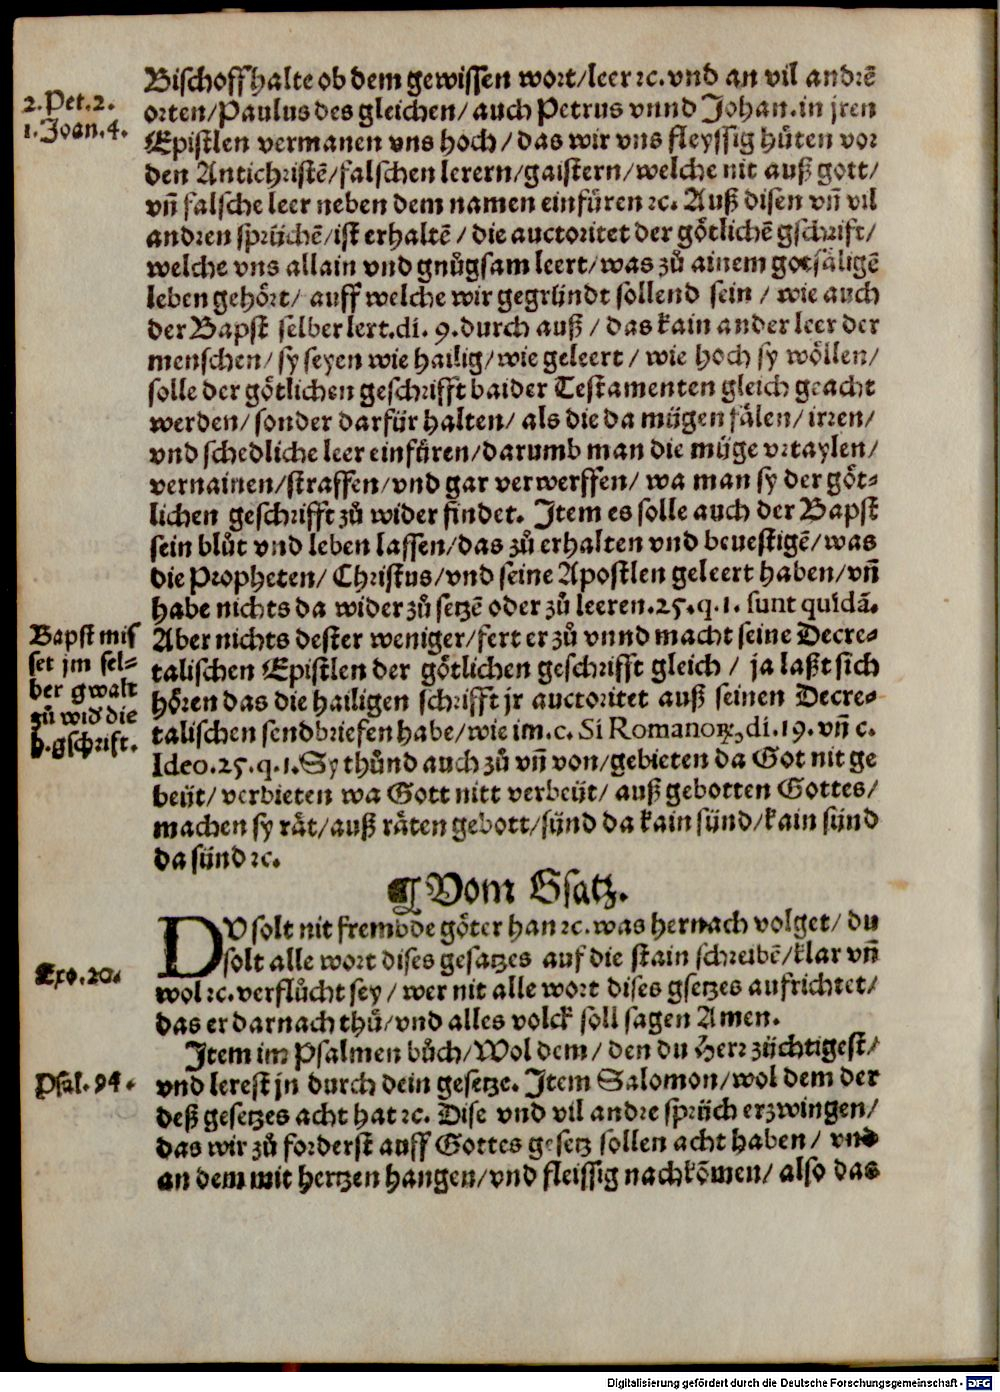 Bischoff halte ob dem gewissen wort/leer ꝛc. vnd an vil andrē
2.Pet.2.
orten/Paulus des gleichen/auch Petrus vnnd Johan.in jren
1.Joan.4.
Epistlen vermanen vns hoch/das wir vns fleyssig hüten vor
den Antichristē/falschen lerern/gaistern/welche nit auß gott/
vñ falsche leer neben dem namen einfüren ꝛc. Auß disen vñ vil
andren sprüchē/ist erhaltē/die auctoritet der götlichē gschrift/
welche vns allain vnd gnůgsam leert/was zů ainem gotsäligē
leben gehört/ auff welche wir gegründt sollend sein/wie auch
der Bapst selber lert.di. 9.durch auß/das kain ander leer der
menschen/sy seyen wie hailig/wie geleert/wie hoch sy wöllen/
solle der götlichen geschrifft baider Testamenten gleich geacht
werden/sonder darfür halten/als die da mügen fälen/irren/
vnd schedliche leer einfüren/darumb man die müge vrtaylen/
vernainen/straffen/vnd gar verwerffen/wa man sy der göt-
lichen geschrifft zů wider findet. Item es solle auch der Bapst
sein blůt vnd leben lassen/das zů erhalten vnd beuestigē/was
die Propheten/Christus/vnd seine Apostlen geleert haben/vñ
habe nichts da wider zů setzē oder zů leeren.25.q.1. sunt quidā.
Bapst mis
set jm sel-
ber gwalt
zů wid' die
h.gschrift.
Aber nichts dester weniger/fert er zů vnnd macht seine Decre-
talischen Epistlen der götlichen geschrifft gleich/ja laßt sich
hören das die hailigen schrifft jr auctoritet auß seinen Decre-
talischen sendbriefen habe/wie im.c. Si Romanoꝝ,di.19.vñ c.
Ideo.25.q.1.Sy thůnd auch zů vñ von/gebieten da Got nit ge
beüt/verbieten wa Gott nitt verbeüt/auß gebotten Gottes/
machen sy rät/auß räten gebott/sünd da kain sünd/kain sünd
da sünd ꝛc.
¶ Vom Gsatz.
DV solt nit frembde göter han ꝛc.was hernach volget/du
Exo.20.
solt alle wort dises gesatzes auf die stain schreibē/klar vñ
wol ꝛc.verflůcht sey/wer nit alle wort dises gsetzes aufrichtet/
das er darnach thů/vnd alles volck soll sagen Amen.
Item im Psalmen bůch/Wol dem/den du Herr züchtigest/
Psal.94.
vnd lerest jn durch dein gesetze. Item Salomon/wol dem der
deß gesetzes acht hat ꝛc. Dise vnd vil andre sprüch erzwingen/
das wir zů forderst auff Gottes gesetz sollen acht haben/vnd
an dem mit hertzen hangen/vnd fleissig nachkōmen/also das
Digitalisierung gefördert durch die Deutsche Forschungsgemeinschaft - DFG